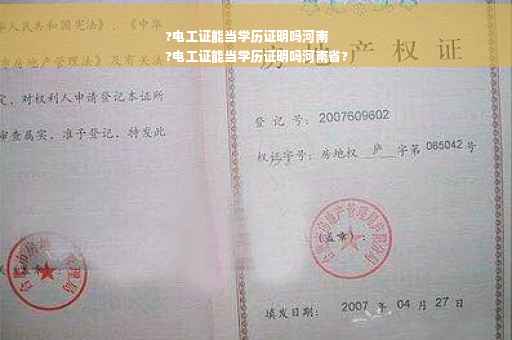 ?电工证能当学历证明吗河南
?电工证能当学历证明吗河南省?
华人民共和国
房地产管理法》及有关法
定，对权利人申请登记本证所
审查属实，准予登记，特发此
产权证
登记号：2007609602
权证字号：房地权 庐 字第 085042 号
（盖章）：
填发日期： 2007 年 04 月 27 日